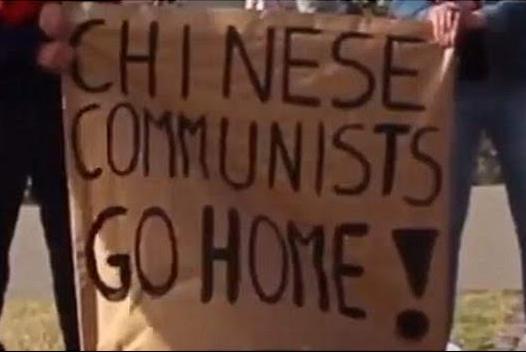 CHINESE
COMMUNISTS
GO HOME!